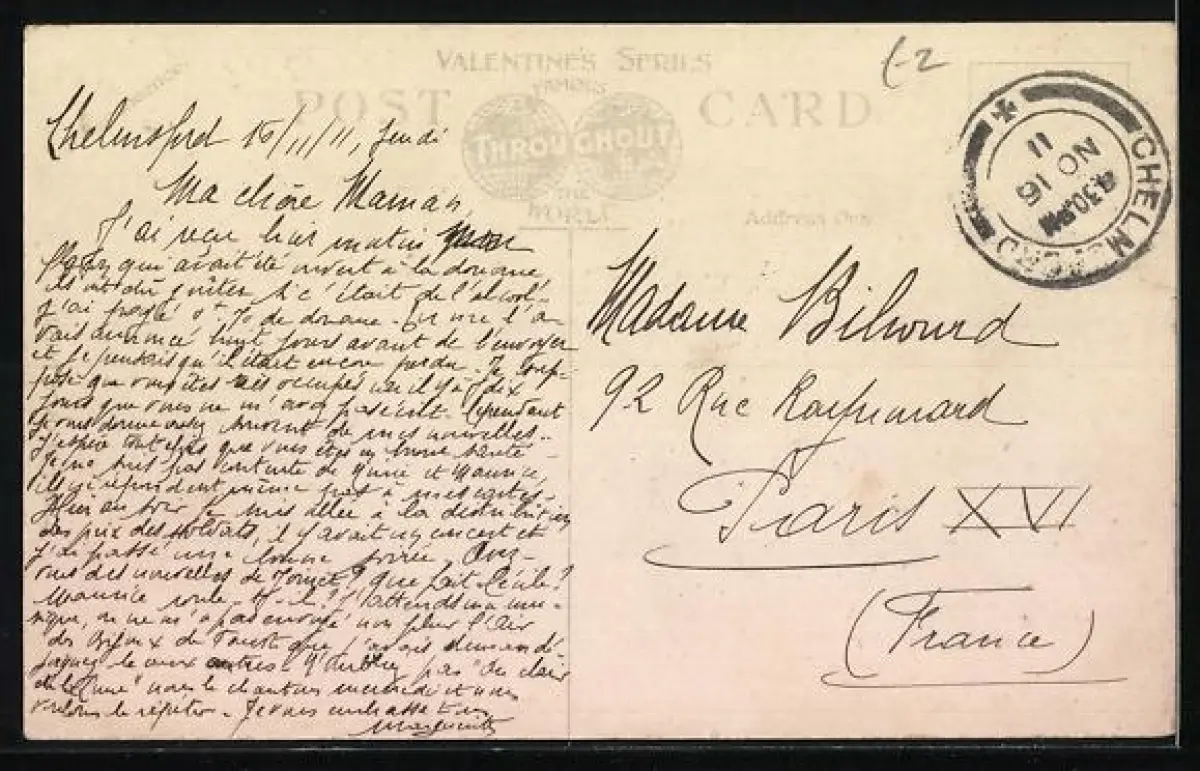 VALENTINE'S SERIES
FAMOUS
POST CARD
THROUGHOUT
THE
WORLD
Address Only
(-2
CHELMSFORD
4.30 PM
NO 16
11
Chelmsford 16/11/11, Jeudi
Ma chère Maman,
J'ai reçu hier matin
qui avait été ouvert à la douane,
ils ont dû goûter si c'était de l'alcool.
J'ai payé de douane. On me l'a-
vait annoncé huit jours avant de l'envoyer
et je pensais qu'il était encore perdu. Je sup-
pose que vous êtes très occupés car il y a dix
jours que vous ne m'avez pas écrit. Cependant
je vous donne assez souvent de mes nouvelles.
J'espère que vous êtes en bonne santé.
Je ne suis pas contente de et Maurice,
ils ne répondent même pas à mes cartes.
Hier au soir je suis allée à la distribution
des prix des soldats, il y avait un concert et
j'ai passé une bonne soirée. Avez-
vous des nouvelles de ? Que fait Cécile?
Maurice roule-t-il? J'attends ma mu-
sique, on ne m'a pas envoyé non plus l'Air
des Bijoux de Faust que j'avais demandé
avec les deux autres. N'oubliez pas "Au clair
de la lune" nous le chantons mercredi et nous
voulons le répéter. Je vous embrasse tous
Marguerite
Madame Bilwurd
92 Rue Raynouard
Paris XVI
(France)